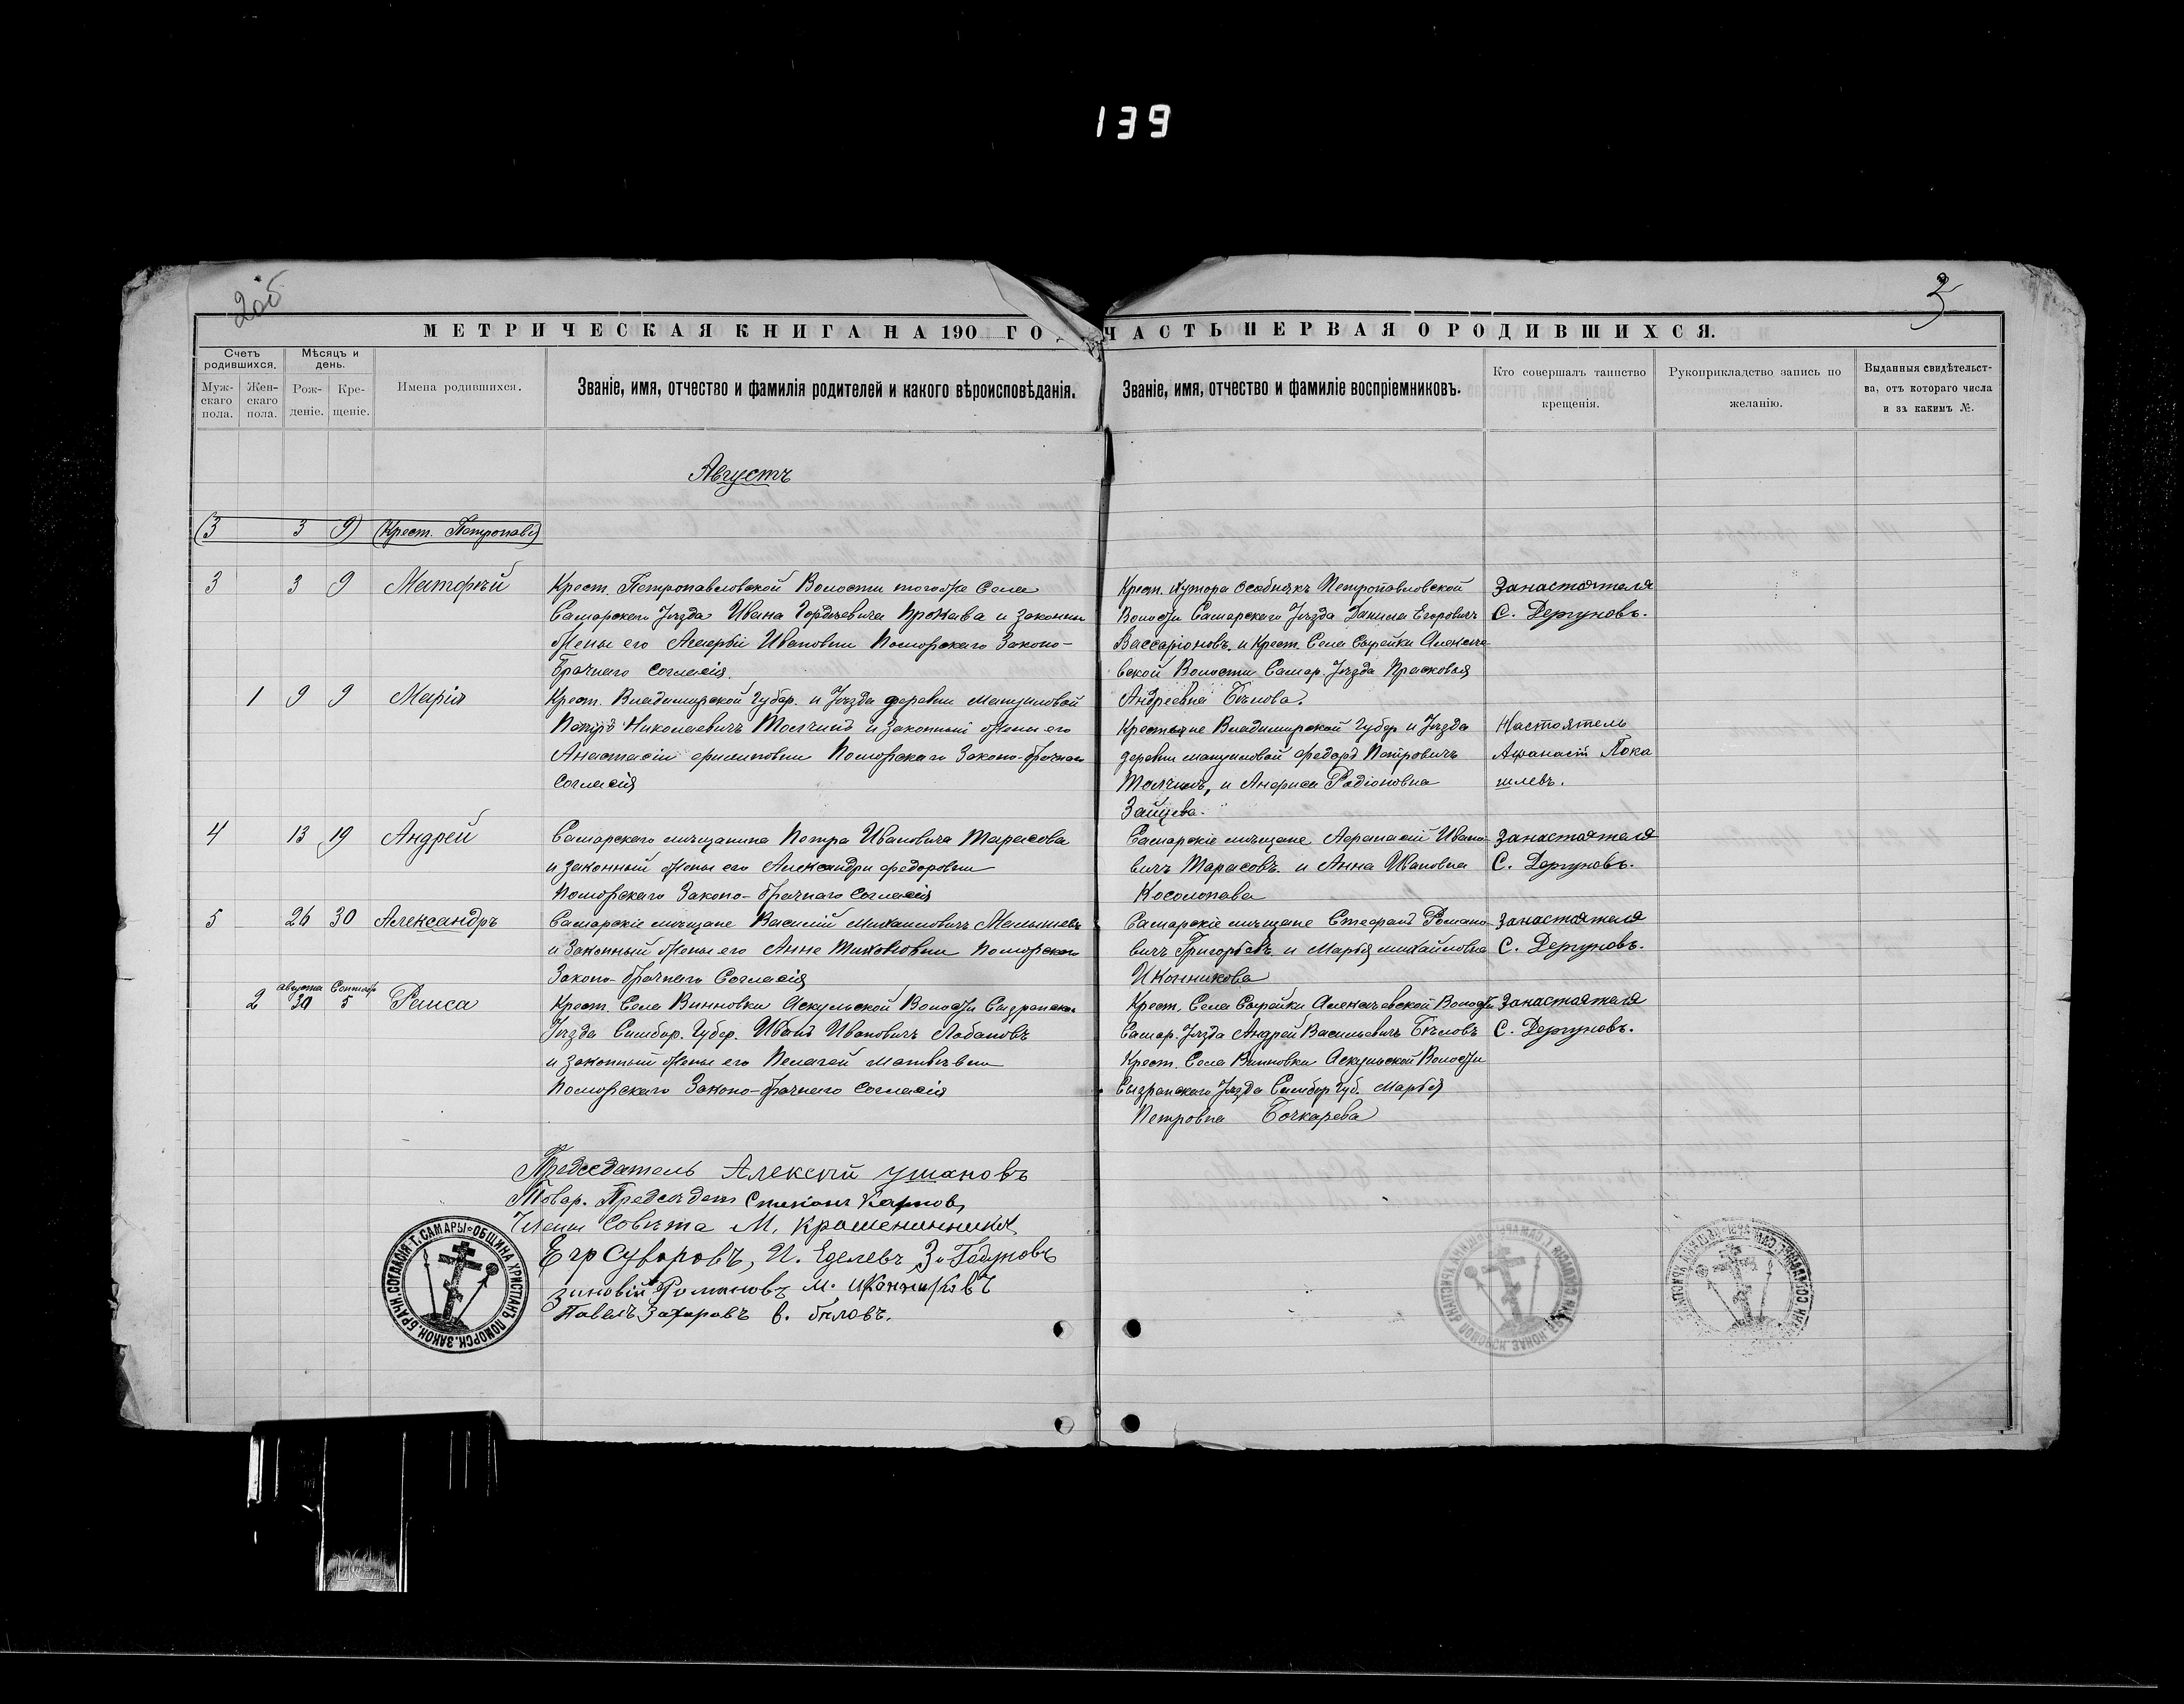 139
2об
3
МЕТРИЧЕСКАЯ КНИГА НА 190 ГОД ЧАСТЬ ПЕРВАЯ О РОДИВШИХСЯ.
Счетъ родившихся.
Мѣсяцъ и день.
Муж-скаго пола.
Жен-скаго пола.
Рож-деніе.
Кре-щеніе.
Имена родившихся.
Званіе, имя, отчество и фамилія родителей и какого вѣроисповѣданія.
Званіе, имя, отчество и фамиліе воспріемниковъ.
Кто совершалъ таинство крещенія.
Рукоприкладство запись по желанію.
Выданныя свидѣтельст-ва, отъ котораго числа и за какимъ №.
Августъ
(3 3 9) (Крест. Петропавл)
3 3 9 Матфѣй
Крест. Петропавловской Волости того же Села
Самарскаго Уѣзда Ивана Гордѣевича и законной
жены его Ивановны Поморскаго Законо-
брачнаго согласія.
Крест. хутора Особнякъ Петропавловской
Волости Самарскаго Уѣзда Данила Егоровичъ
Вассаріоновъ и Крест. Села Сырейки Алексѣе
вской Волости Самар. Уѣзда Прасковья
Андреевна Бѣлова.
Занастоятеля
С. Дергуновъ.
1 9 9 Марія
Крест. Владимирской Губер. и Уѣзда деревни
Петръ Николаевичъ и законный жены его
Анастасіи Филиповны Поморскаго Законо-брачнаго
согласія
Крестьяне Владимирской Губер и Уѣзда
деревни Федоръ Петровичъ
и Анфиса Радіоновна
Зайцева.
Настоятель
Афанасій Пока
шлевъ.
4 13 19 Андрей
Самарскаго мѣщанина Петра Ивановича Тарасова
и законный жены его Александры Федоровны
Поморскаго Законо-брачнаго согласія
Самарскіе мѣщане Афанасій Ивано-
вичъ Тарасовъ и Анна Ивановна
Косолопава
Занастоятеля
С. Дергуновъ.
5 26 30 Александръ
Самарскіе мѣщане Василій Михаиловичъ
и Законный жены его Анне Тихоновны Поморскаго
Законо-брачнаго Согласія
Самарскіе мѣщане Стефанъ Романо-
вичъ Григорьевъ и Марья михайловна
Иконникова
Занастоятеля
С. Дергуновъ.
августа Сентябр
2 30 5 Раиса
Крест. Села Винновки Аскульской Волости Сызранскаго
Уѣзда Симбир. Губер. Иванъ Ивановичъ Лобановъ
и законный жены его Пелагей матвѣевны
Поморскаго Законо-брачнаго согласія
Крест. Села Сырейки Алексѣевской Волости
Самар. Уѣзда Андрей Васильевичъ Бѣловъ
Крест. Села Винновки Аскульской Волости
Сызранскаго Уѣзда Симбир Губ. Марья
Петровна Бочкарева
Занастоятеля
С. Дергуновъ.
Председатель Алексѣй Ушановъ
Товар. Предсѣдат Степанъ Карпов
Члены Совѣта М. Крашенинников
Егр Суворовъ, И. Еделевъ З. Годуновъ
зиновій Романовъ М. Иконниковъ
Павелъ Захаровъ В. бѣловъ.
ОБЩИНА ХРИСТІАНЪ ПОМОРСК. ЗАКОН. БРАЧН. СОГЛАСІЯ Г. САМАРЫ